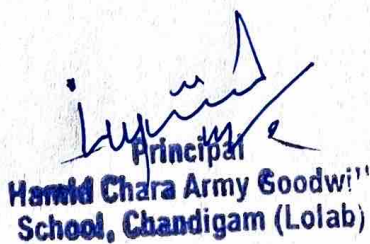 Principal
Hamid Chara Army Goodwi"
School, Chandigam (Lolab)